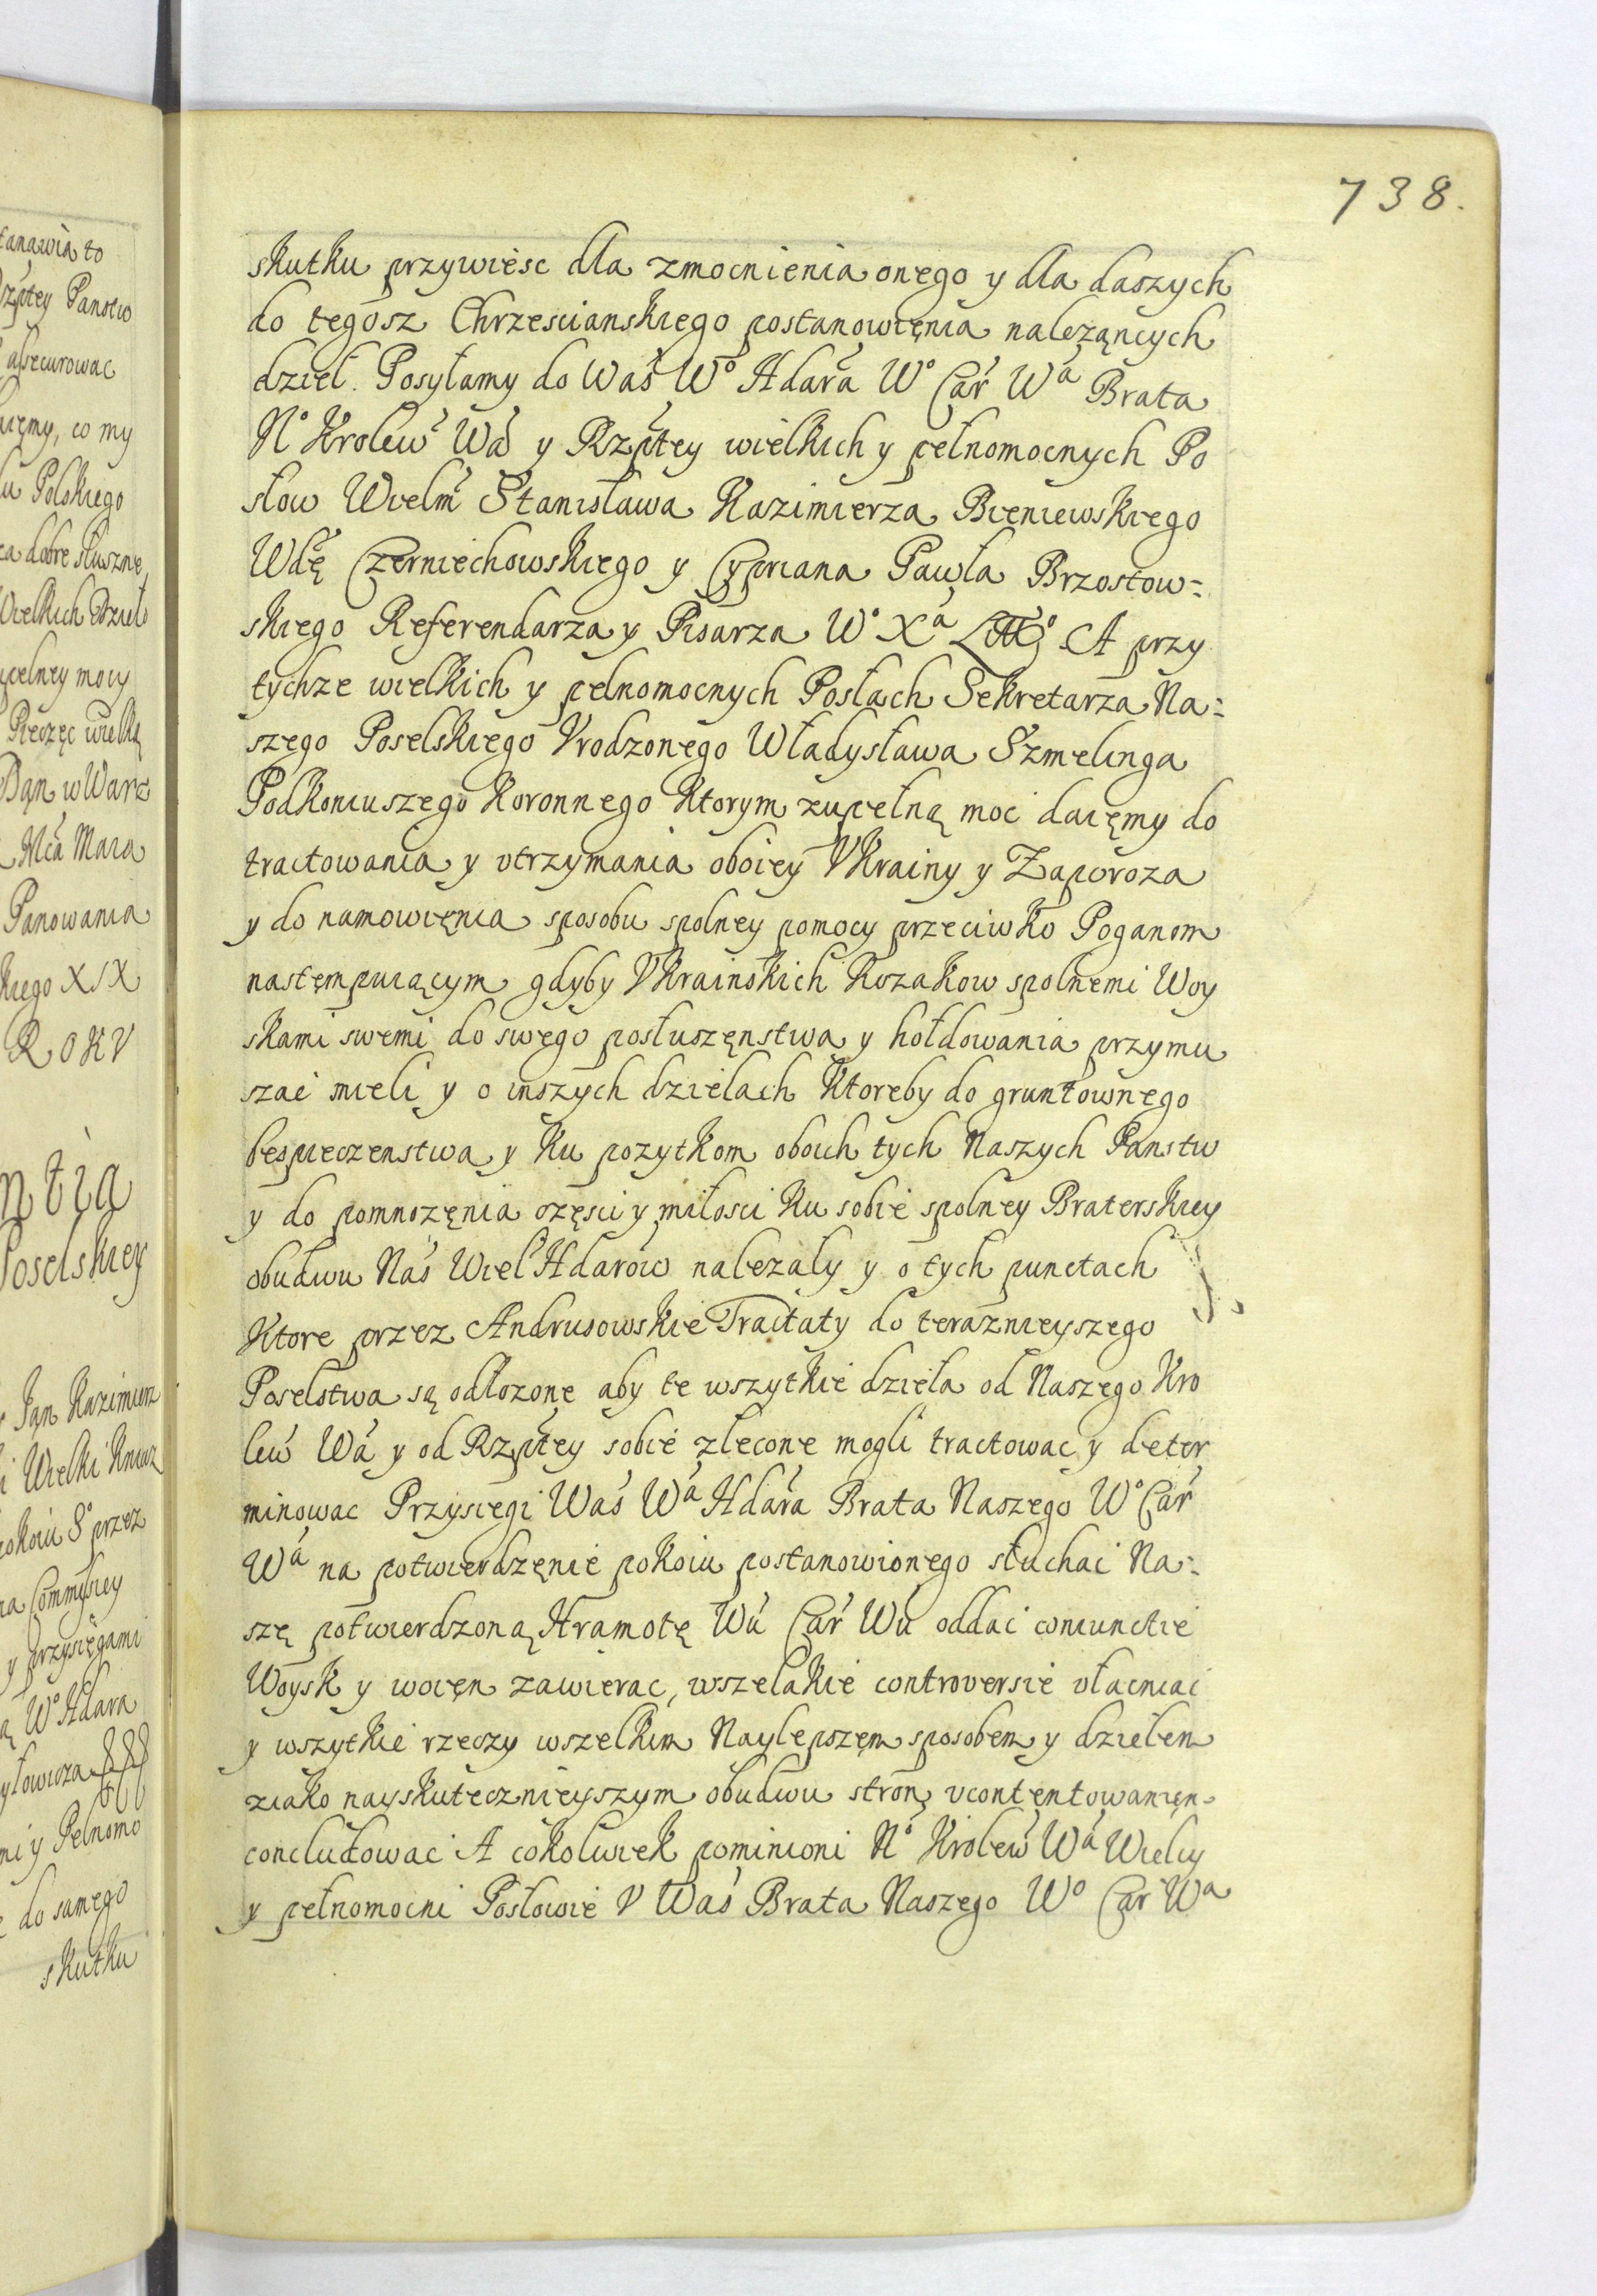 738.
skutku przywiesc dla zmocnienia onego y dla daszych
do tegosz Chrzescianskiego postanowięnia należąncych
dzieł. Posyłamy do Waś Wº Hdara Wº Car Wa Brata
Nº Krolew Wa y Rzptey wielkich y pełnomocnych Po
słow Wielm Stanisława Kazimierza Bieniewskiego
Wdę Czerniechowskiego y Cypriana Pawła Brzostow=
skiego Referendarza y Pisarza Wº Xa Littº A przy
tychze wielkich y pełnomocnych Posłach Sekretarza Na=
szego Poselskiego Vrodzonego Władysława Szmelinga
Podkoniuszego Koronnego Ktorym zupełną moc daięmy do
tractowania y vtrzymania oboiey Vkrainy y Zaporoza
y do namowięnia sposobu spolney pomocy przeciwko Poganom
nastęmpuiącym gdyby Vkrainskich Kozakow spolnemi Woy
skami swemi do swego posłuszęnstwa y hołdowania przymu
szac mieli y o inszych dziełach Ktoreby do gruntownego
bespieczenstwa y Ku pozytkom oboich tych Naszych Panstw
y do pomnozęnia częsci y miłosci Ku sobie spolney Braterskiey
obudwu Nas Wiel Hdarow nalezały y o tych punctach
Ktore przez Andrusowskie Tractaty do teraznieyszego
Poselstwa są odłozone aby te wszytkie dzieła od Naszego Kro
lew Wa y od Rzptey sobie zlecone mogli tractowac y deter
minowac Przysiegi Waś Wa Hdara Brata Naszego Wº Car
Wa na potwierdzęnie pokoiu postanowionego słuchac Na=
szę potwierdzoną Hramotę Wu Car Wu oddac coniunctie
Woysk y woięn zawierac, wszelakie controversie vłacniac
y wszytkie rzeczy wszelkim Naylepszęm sposobem y dziełem
ziako nayskutecznieyszym obudwu stron vcontentowanięn
concludowac A cokolwiek pominioni Nº Krolew Wa Wielcy
y pełnomocni Posłowie V Waś Brata Naszego Wº Car Wa